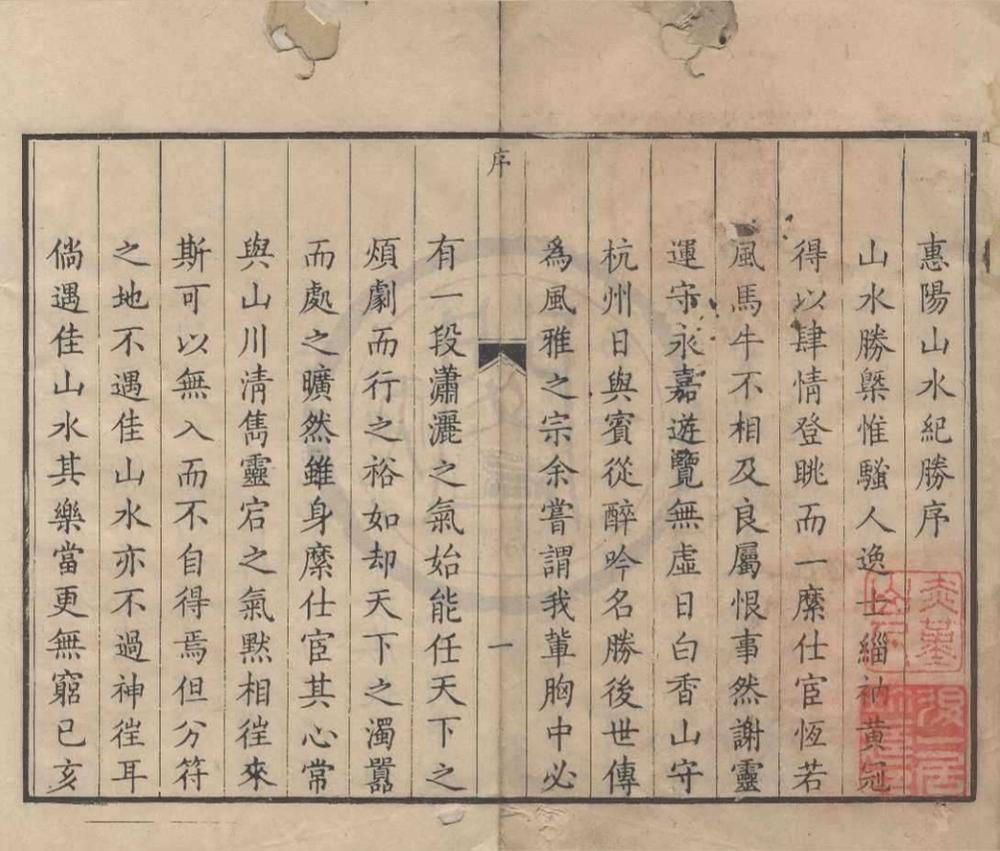 惠陽山水紀勝序
山水勝槩惟騷人逸士緇衲黄冠
得以肆情登眺而一縻仕宦恆若
風馬牛不相及良屬恨事然謝靈
運守永嘉遊覽無虛日白香山守
杭州日與賓從醉吟名勝後世傳
為風雅之宗余嘗謂我輩胸中必
序
一
有一段瀟灑之氣始能任天下之
煩劇而行之裕如却天下之濁嚣
而處之曠然雖身縻仕宦其心常
與山川清雋靈宕之氣默相徃來
斯可以無入而不自得焉但分符
之地不遇佳山水亦不過神徃耳
倘遇佳山水其樂當更無窮已亥